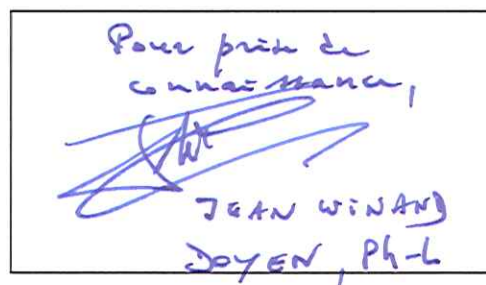 Pour prise de
connaissance,
JEAN WINAND
DOYEN, Ph-L